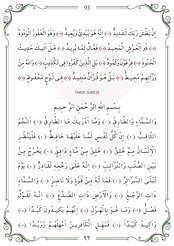 93
إِنَّ بَطْشَ رَبِّكَ لَشَدِيدٌ ﴿١٢﴾ إِنَّهُ هُوَ يُبْدِئُ وَيُعِيدُ ﴿١٣﴾ وَهُوَ الْغَفُورُ الْوَدُودُ
﴿١٤﴾ ذُو الْعَرْشِ الْمَجِيدُ ﴿١٥﴾ فَعَّالٌ لِمَا يُرِيدُ ﴿١٦﴾ هَلْ أَتٰيكَ حَدِيثُ
الْجُنُودِ ﴿١٧﴾ فِرْعَوْنَ وَثَمُودَ ﴿١٨﴾ بَلِ الَّذِينَ كَفَرُوا فِي تَكْذِيبٍ ﴿١٩﴾ وَاللّٰهُ مِنْ
وَرَائِهِمْ مُحِيطٌ ﴿٢٠﴾ بَلْ هُوَ قُرْاٰنٌ مَجِيدٌ ﴿٢١﴾ فِي لَوْحٍ مَحْفُوظٍ ﴿٢٢﴾
TARIK SURESİ
بِسْمِ اللّٰهِ الرَّحْمٰنِ الرَّحِيمِ
وَالسَّمَاءِ وَالطَّارِقِ ﴿١﴾ وَمَا أَدْرٰيكَ مَا الطَّارِقُ ﴿٢﴾ اَلنَّجْمُ
الثَّاقِبُ ﴿٣﴾ إِنْ كُلُّ نَفْسٍ لَمَّا عَلَيْهَا حَافِظٌ ﴿٤﴾ فَلْيَنْظُرِ
الْإِنْسَانُ مِمَّ خُلِقَ ﴿٥﴾ خُلِقَ مِنْ مَاءٍ دَافِقٍ ﴿٦﴾ يَخْرُجُ مِنْ
بَيْنِ الصُّلْبِ وَالتَّرَائِبِ ﴿٧﴾ إِنَّهُ عَلٰى رَجْعِهِ لَقَادِرٌ ﴿٨﴾ يَوْمَ
تُبْلَى السَّرَائِرُ ﴿٩﴾ فَمَا لَهُ مِنْ قُوَّةٍ وَلَا نَاصِرٍ ﴿١٠﴾ وَالسَّمَاءِ
ذَاتِ الرَّجْعِ ﴿١١﴾ وَالْأَرْضِ ذَاتِ الصَّدْعِ ﴿١٢﴾ إِنَّهُ لَقَوْلٌ
فَصْلٌ ﴿١٣﴾ وَمَا هُوَ بِالْهَزْلِ ﴿١٤﴾ إِنَّهُمْ يَكِيدُونَ كَيْدًا ﴿١٥﴾
وَأَكِيدُ كَيْدًا ﴿١٦﴾ فَمَهِّلِ الْكَافِرِينَ أَمْهِلْهُمْ رُوَيْدًا ﴿١٧﴾
٩٣